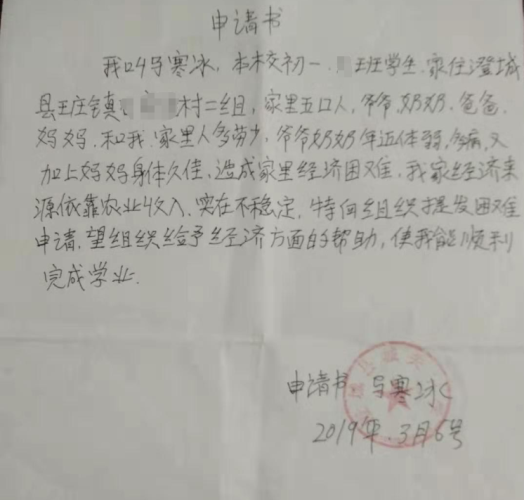 申请书
我叫马寒冰，本校初一 班学生.家住澄城
县王庄镇、 村二组，家里五口人，爷爷.奶奶、爸爸、
妈妈.和我.家里人多劳少，爷爷奶奶年迈体弱，多病，又
加上妈妈身体欠佳，造成家里经济困难，我家经济来
源依靠农业收入.实在不稳定，特向组织提发困难
申请，望组织给予经济方面的帮助，使我能顺利
完成学业.
申请书 马寒冰
2019年.3月6号